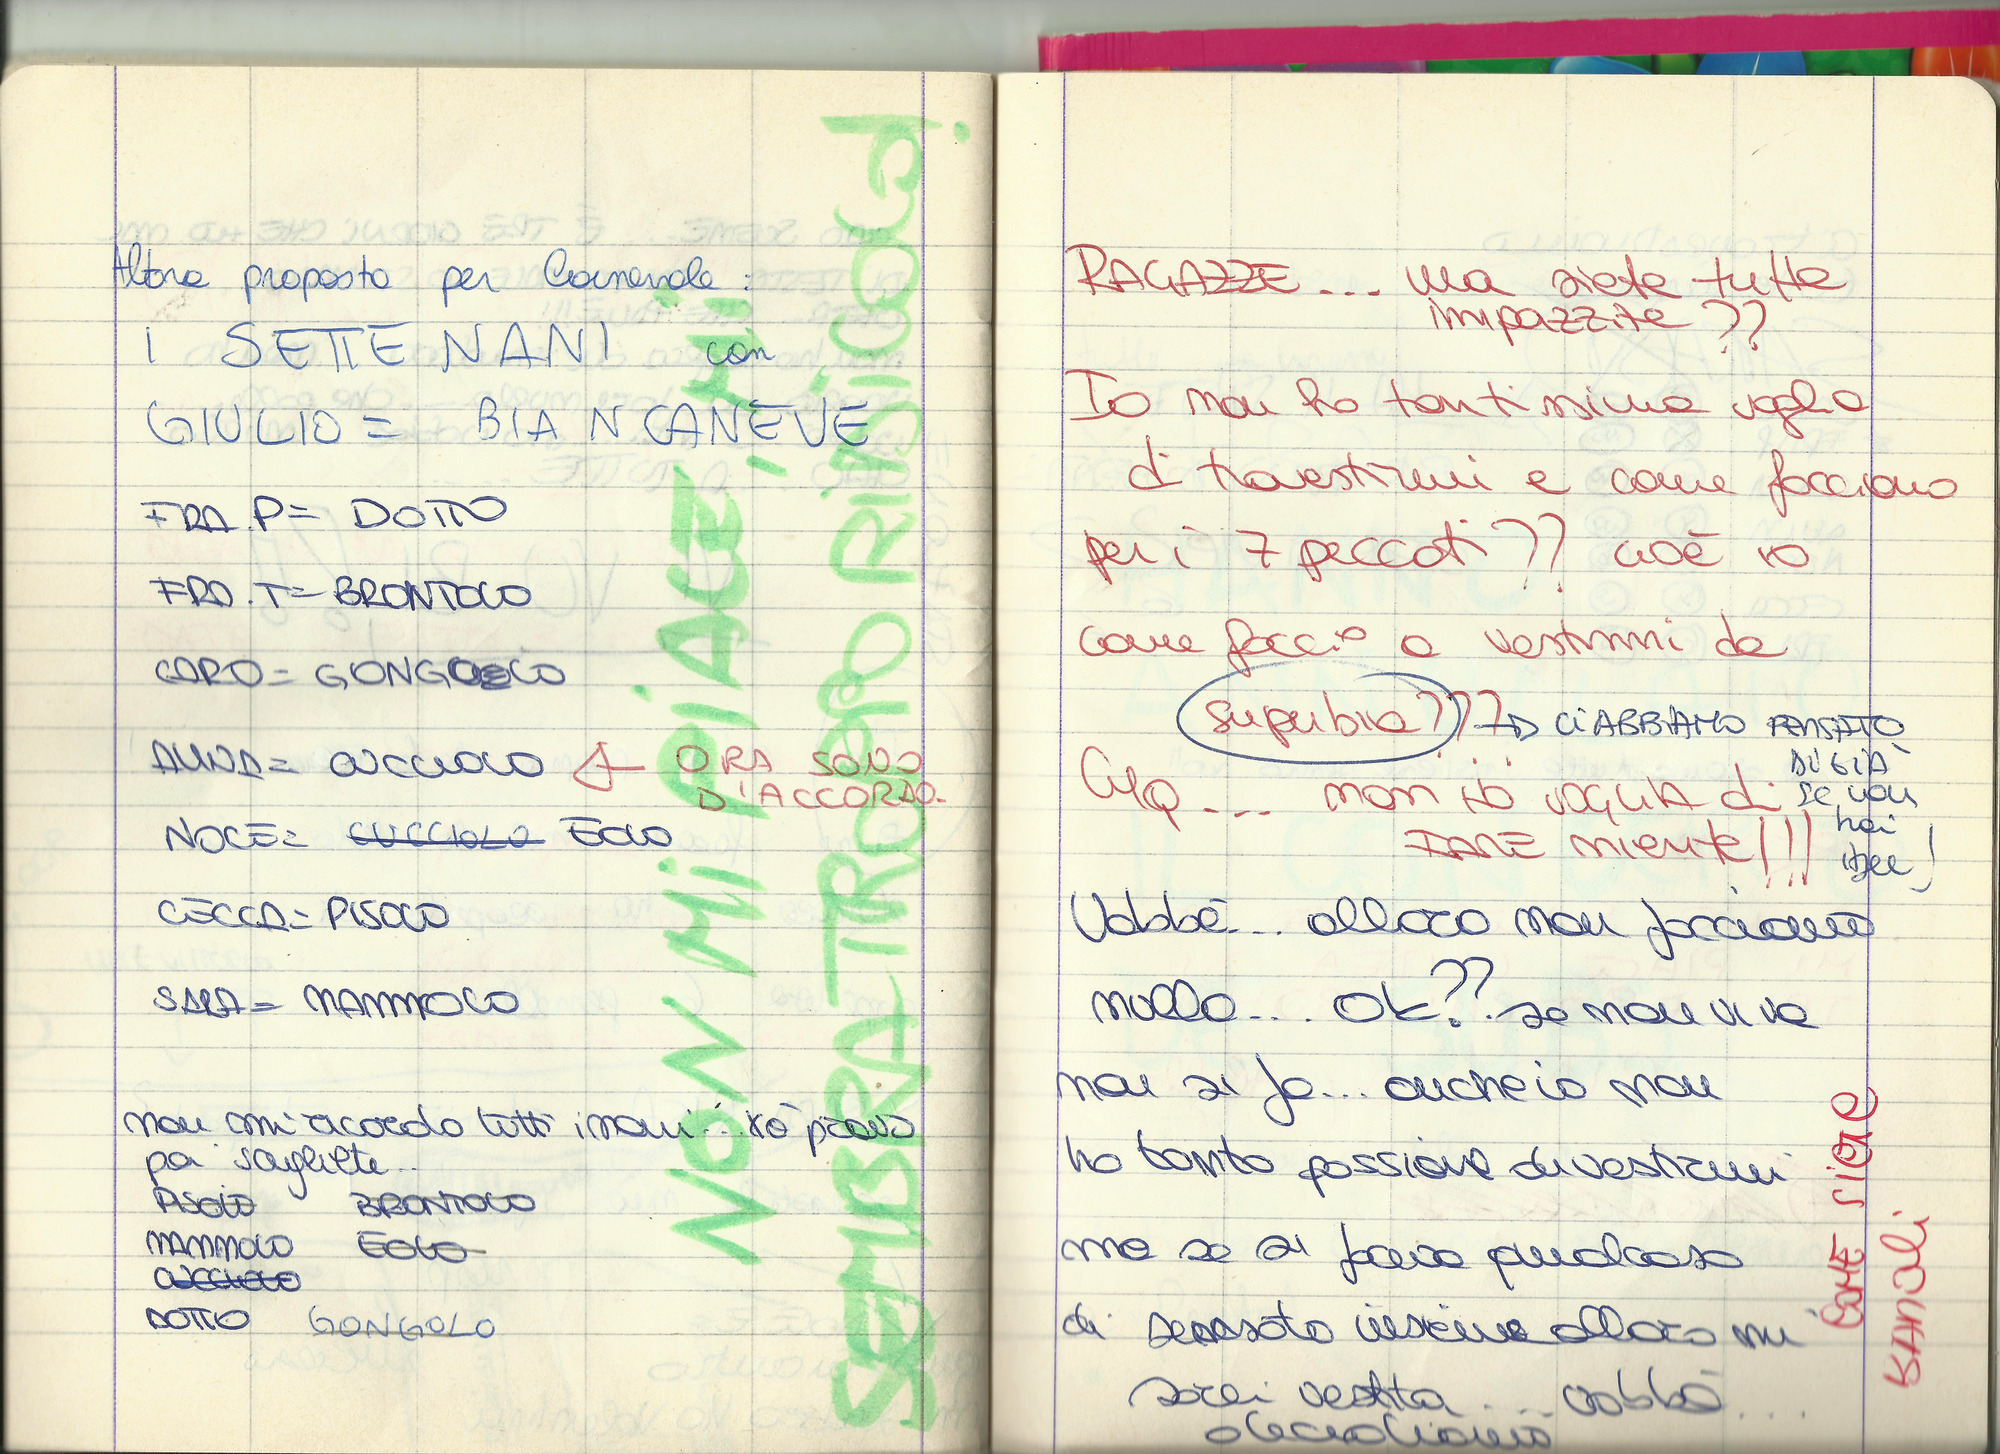 Altra proposta per Carnevale:
i SETTE NANI con
GIULIO = BIANCANEVE
FRA.P= DOTTO
FRA.T= BRONTOLO
CARO= GONGOLO
ANNA= CUCCIOLO ORA SONO
D'ACCORDO.
NOCE= CUCCIOLO EOLO
CECCA= PISOLO
SARA= MAMMOLO
non mi ricordo tutti i nani... provo
poi scegliete...
PISOLO BRONTOLO
MAMMOLO EOLO
CUCCIOLO
DOTTO GONGOLO
NON MI PIACE, MI
SEMBRA TROPPO RIISICATA!
RAGAZZE... ma siete tutte
impazzite??
Io non ho tantissima voglia
di travestirmi e come facciamo
per i 7 peccati?? cioè io
come faccio a vestirmi da
superbia??? CI ABBIAMO PENSATO
DI GIÀ
se non
hai
idee!
... non HO VOGLIA di
FARE niente!!!
Vabbè... allora non facciamo
nulla... OK?? se non vi va
non si fa... anche io non
ho tanta passione di vestirmi
ma se si faceva qualcosa
di sensato insieme allora mi
sarei vestita... vabbè...
decidiamo
COME SIETE
BANALI